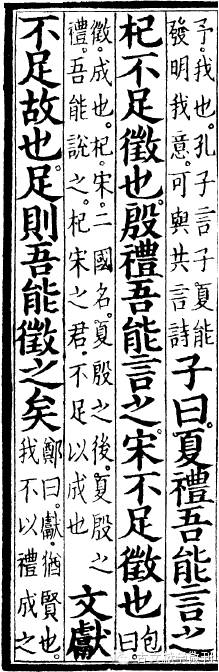 予。我也。孔子言子夏能
發明我意。可與共言詩
子曰。夏禮吾能言之
杞不足徵也。殷禮吾能言之。宋不足徵也。
包曰
徵。成也。杞。宋。二國名。夏殷之後。夏殷之
禮。吾能說之。杞宋之君。不足以成也
文獻
不足故也。足則吾能徵之矣
鄭曰。獻。猶賢也。
我不以禮成之